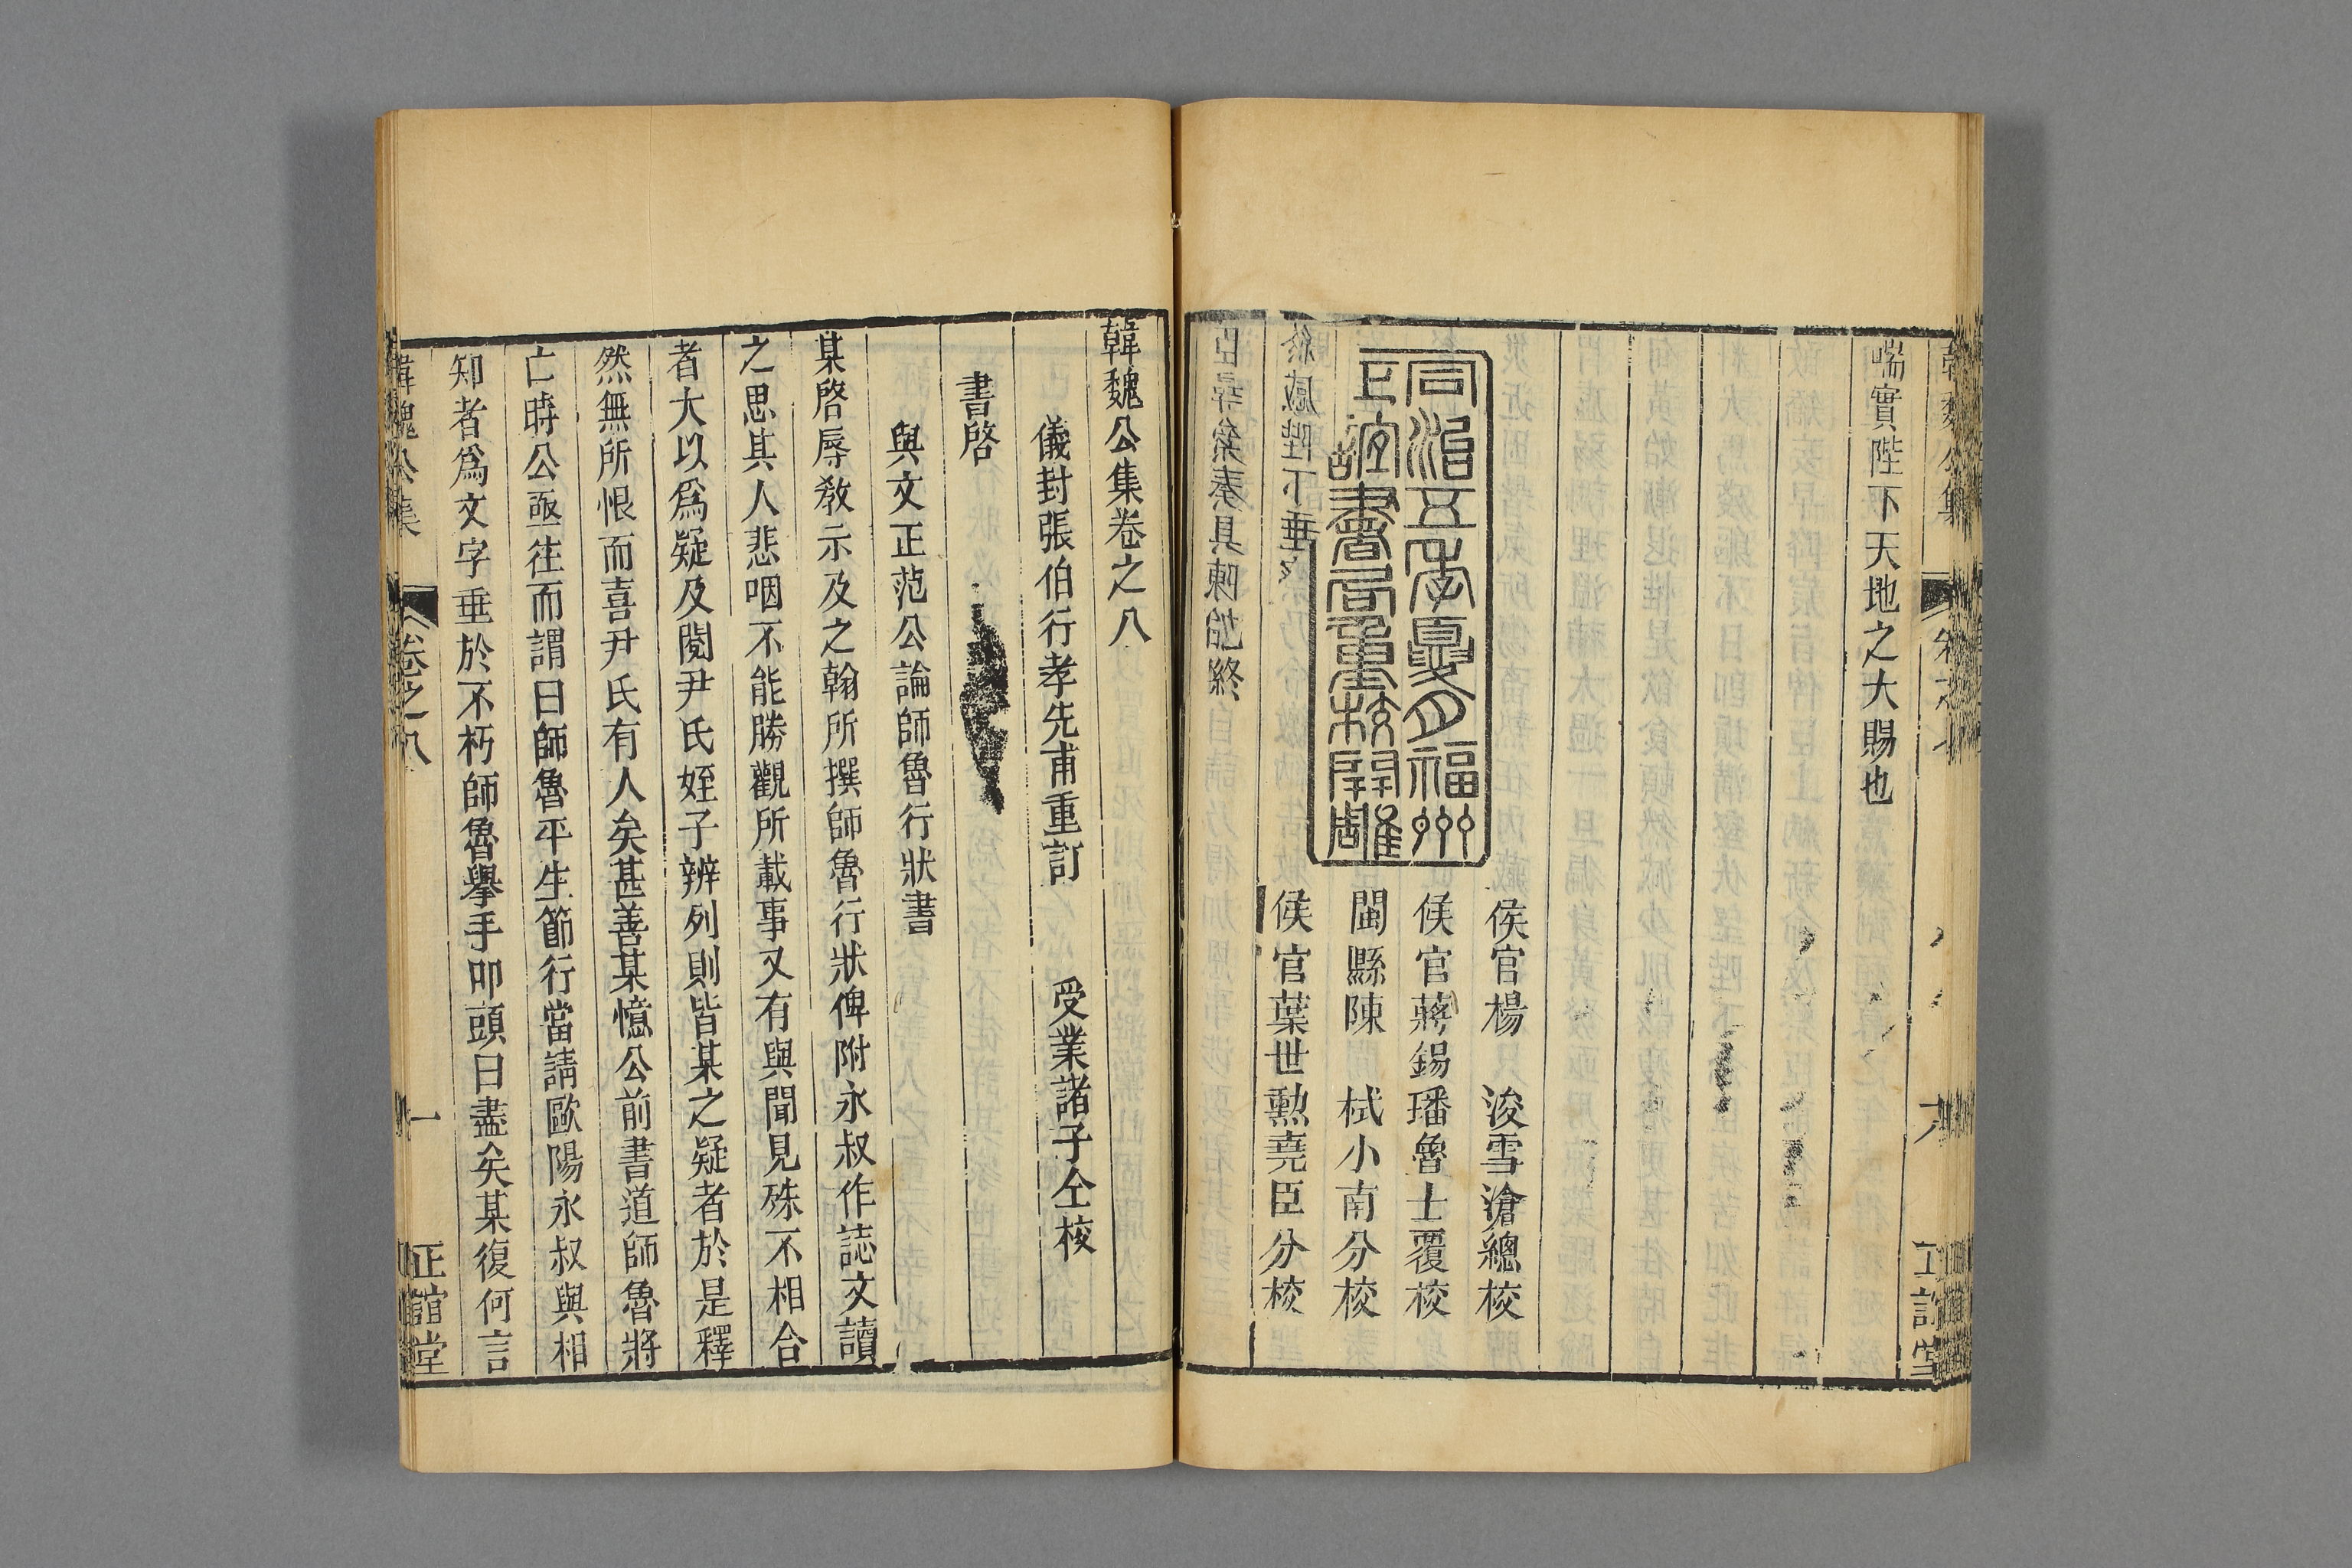 喘實陛下天地之大賜也
侯官楊　浚雪滄總校
侯官蔣錫璠魯士覆校
閩縣陳　栻小南分校
侯官葉世勳堯臣分校
同治五年夏月福州
正誼書局重校開雕
韓魏公集卷之八
儀封張伯行孝先甫重訂　受業諸子仝校
書啓
與文正范公論師魯行狀書
某啓辱教示及之翰所撰師魯行狀俾附永叔作誌文讀
之思其人悲咽不能勝觀所載事又有與聞見殊不相合
者大以爲疑及閱尹氏姪子辨列則皆某之疑者於是釋
然無所恨而喜尹氏有人矣甚善某憶公前書道師魯將
亡時公亟往而謂曰師魯平生節行當請歐陽永叔與相
知者爲文字垂於不朽師魯舉手叩頭曰盡矣某復何言
韓魏公集　卷之八　一　正誼堂